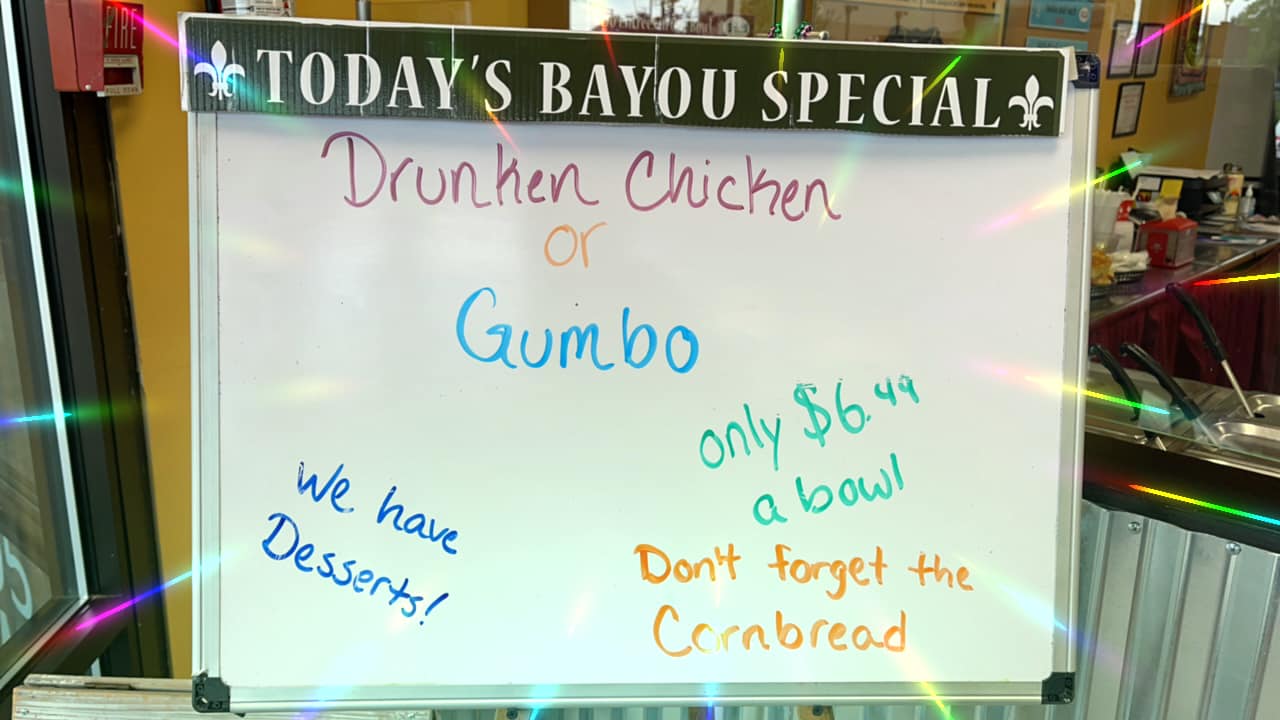 FIRE
TODAY'S BAYOU SPECIAL
Drunken Chicken
or
Gumbo
only $6.49
a bowl
We have
Desserts!
Don't forget the
Cornbread